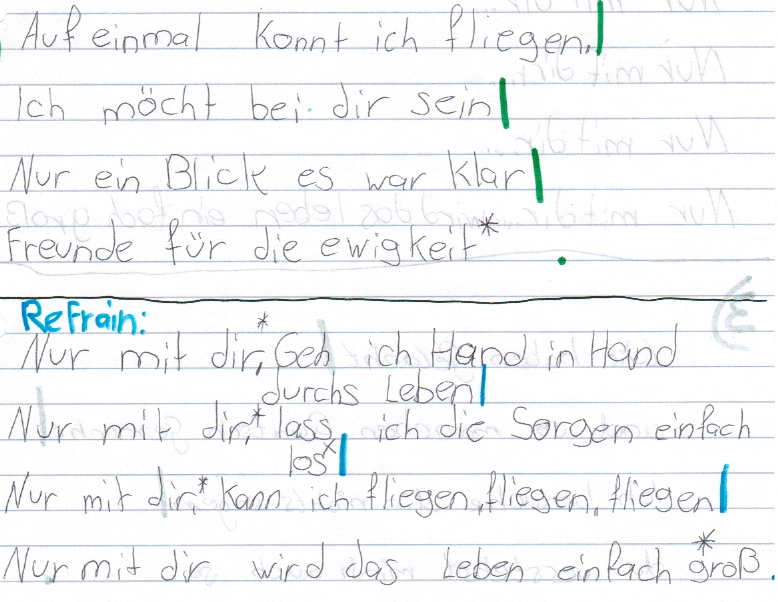 Auf einmal konnt ich fliegen.
Ich möcht bei dir sein
Nur ein Blick es war klar
Freunde für die ewigkeit*
.
Refrain:
*
Nur mit dir, Geh ich Hand in Hand
durchs Leben
Nur mit dir,* lass ich die Sorgen einfach
los x
Nur mit dir,* kann ich fliegen, fliegen, fliegen
*
Nur mit dir wird das Leben einfach groß.